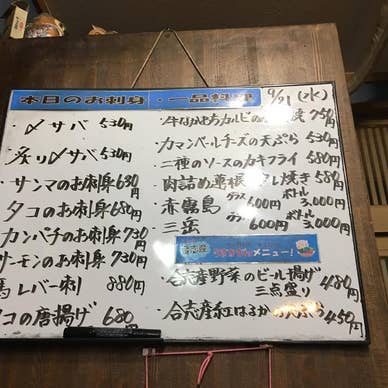 本日のお刺身・一品料理 9/21 (水)
〆サバ 530円
炙り〆サバ 530円
・サンマのお刺身 630円
タコのお刺身 680円
カンパチのお刺身 730円
サーモンのお刺身 730円
馬レバー刺 880円
タコの唐揚げ 680円
・牛なかおちカルビの 焼 750円
カマンベールチーズの天ぷら 530円
・二種のソースのカキフライ 580円
・肉詰め 焼き 580円
・赤霧島 グラス 600円 ボトル 3,000円
・三岳 グラス 600円 ボトル 3,000円
合志産
メニュー!
・合志産野菜のビール揚げ 三点盛り 480円
・合志産紅はるか 450円